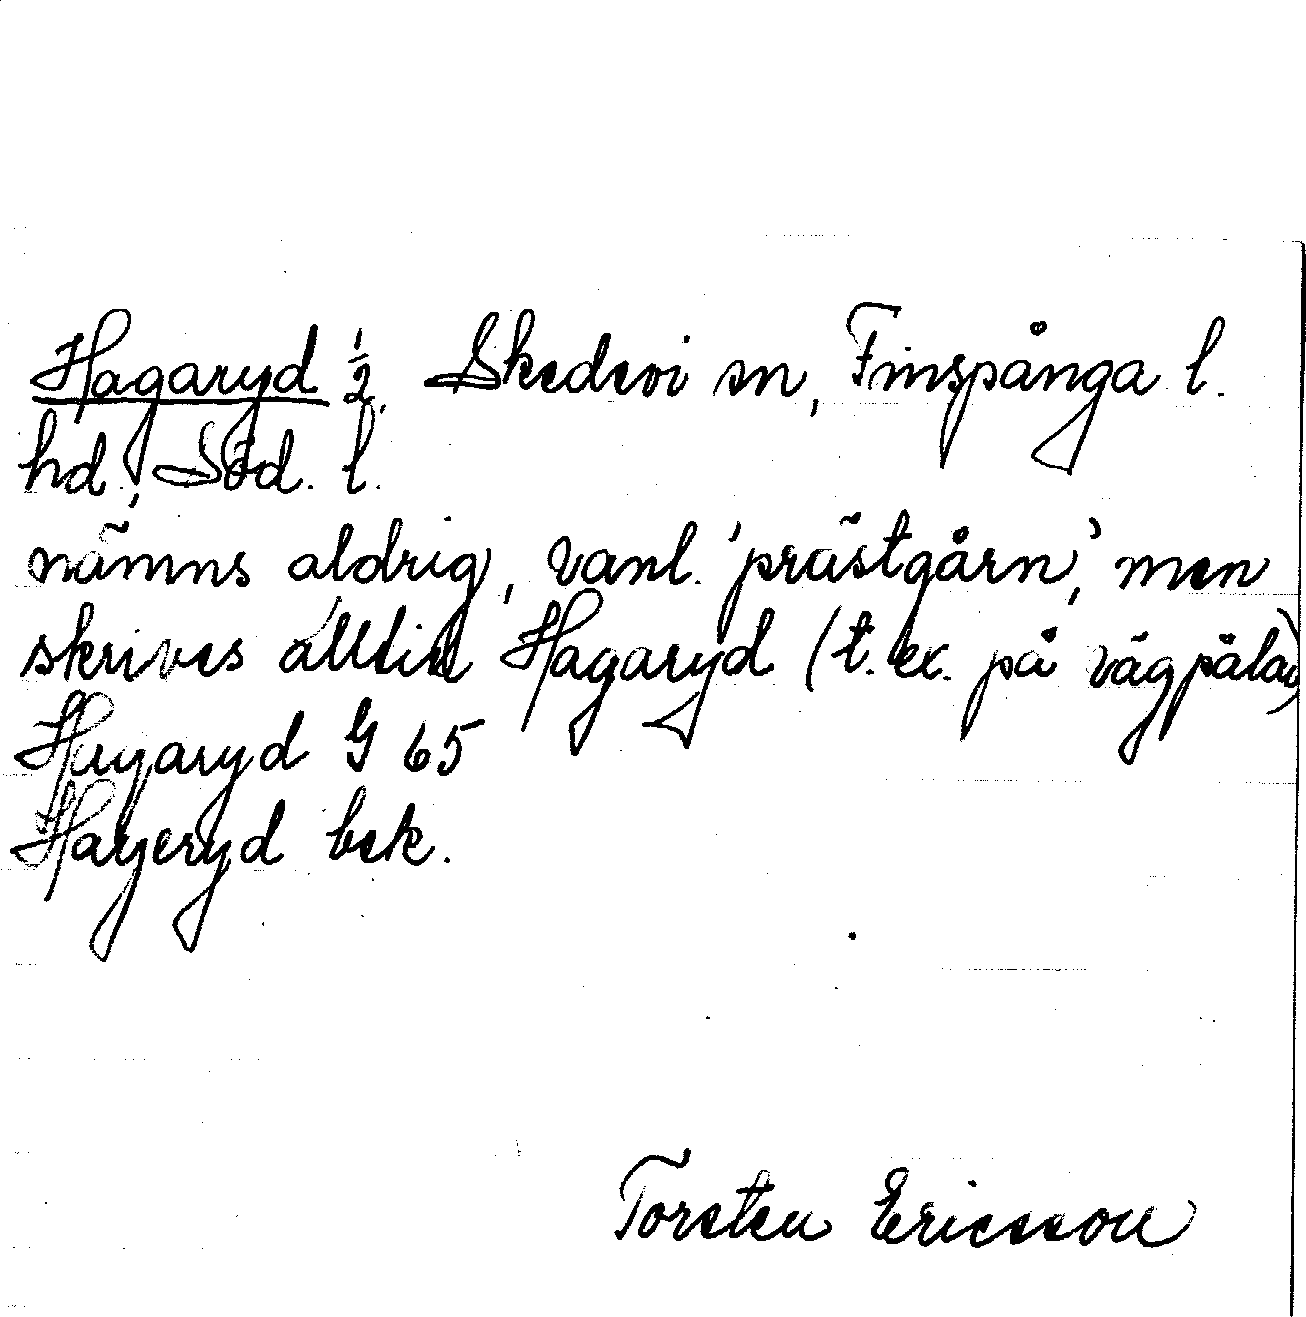 Hagaryd 1/2, Skedevi sn, Finspånga l.
hd, Söd. l.
nämns aldrig, vanl. 'prästgårn', men
skrives alltid Hagaryd (t. ex. på vägpålar)
Hagaryd G 65
Hageryd bek.
Torsten Ericsson